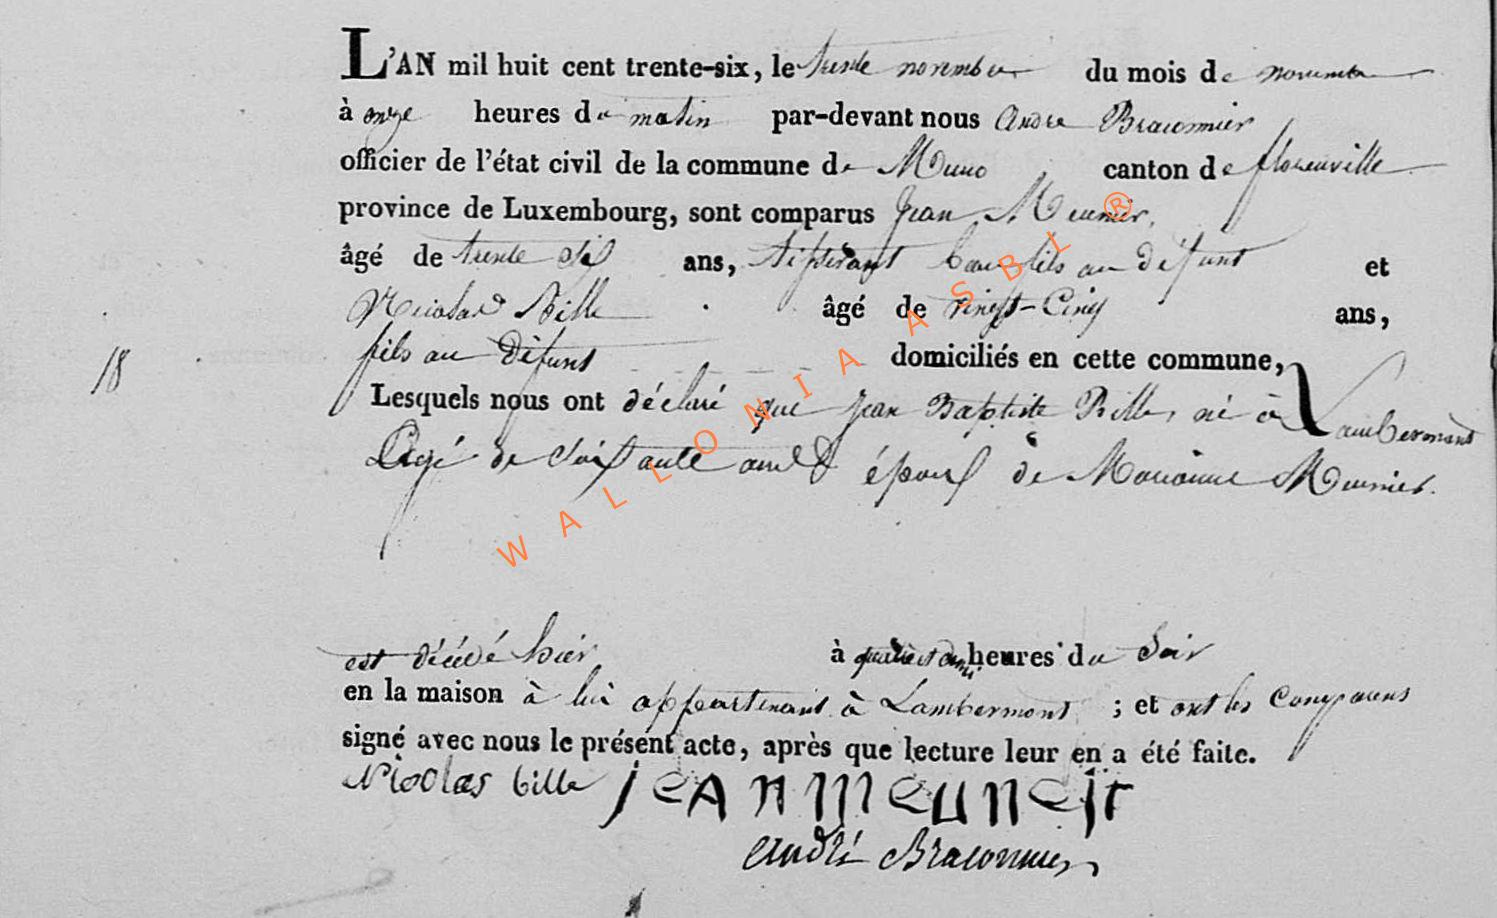 L'AN mil huit cent trente-six, le trente novembre du mois de novembre
à onze heures du matin par-devant nous André Braconnier
officier de l'état civil de la commune de Muno canton de florenville
province de Luxembourg, sont comparus Jean Meunier,
âgé de trente six ans, tisserant beau fils au défunt et
Nicolas Bille âgé de vingt-Cinq ans,
fils au défunt domiciliés en cette commune,
18
Lesquels nous ont déclaré que Jean Baptiste Bille, né à Lambermont
Agé de Soixante ans époux de Marianne Meunier.
est décédé hier à quatre et demi heures du Soir
en la maison à lui appartenant à Lambermont ; et ont les Comparens
signé avec nous le présent acte, après que lecture leur en a été faite.
Nicolas bille JEAN MEUNEIR
André Braconnier
WALLONIA ASBL ®